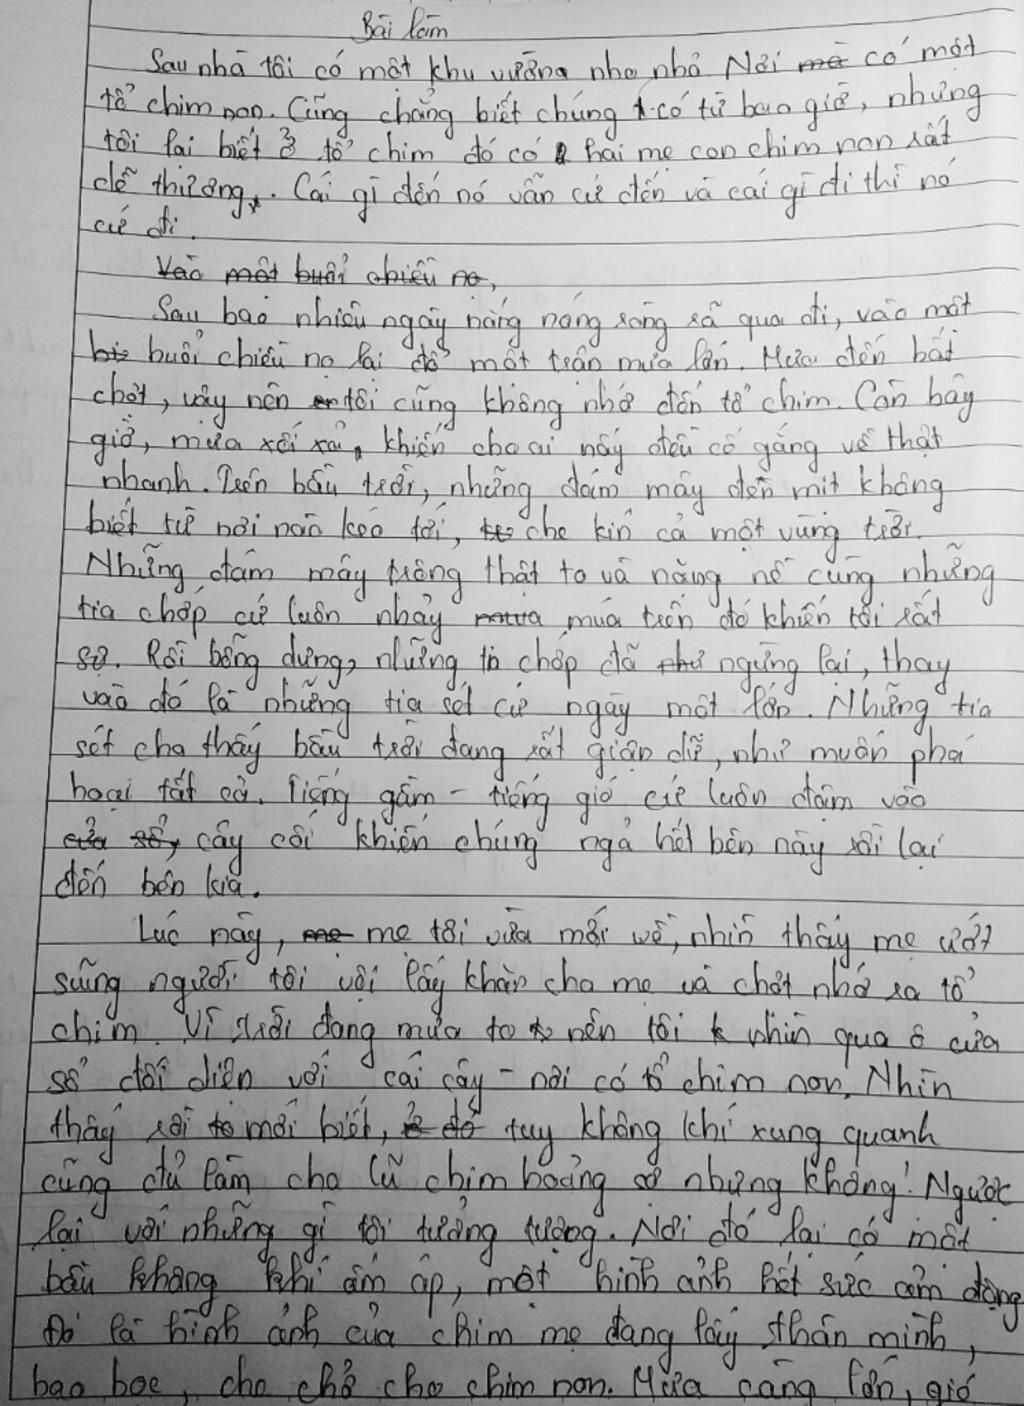 Bài làm
Sau nhà tôi có một khu vườn nho nhỏ. Nơi có một
tổ chim non. Cũng chẳng biết chúng có từ bao giờ, nhưng
tôi lại biết ở tổ chim đó có hai mẹ con chim non rất
dễ thương. Cái gì đến nó vẫn cứ đến và cái gì đi thì nó
cứ đi.
Vào một buổi chiều nọ,
Sau bao nhiêu ngày nắng nóng ròng rã qua đi, vào một
buổi chiều nọ lại đổ một trận mưa lớn. Mưa đến bất
chợt, vậy nên tôi cũng không nhớ đến tổ chim. Còn bây
giờ, mưa xối xả, khiến cho ai nấy đều cố gắng về thật
nhanh. Trên bầu trời, những đám mây đen mịt không
biết từ nơi nào kéo tới, che kín cả một vùng trời.
Những đám mây trông thật to và nặng nề cùng những
tia chớp cứ luôn nhảy múa trên đó khiến tôi rất
sợ. Rồi bỗng dưng, những chớp đã ngừng lại, thay
vào đó là những tia sét cứ ngày một lớn. Những tia
sét cho thấy bầu trời đang rất giận dữ, như muốn phá
hoại tất cả. Tiếng gầm - tiếng gió cứ luôn đâm vào
cửa sổ, cây cối khiến chúng ngả hết bên này rồi lại
đến bên kia.
Lúc này, mẹ tôi vừa mới về, nhìn thấy mẹ ướt
sũng người tôi vội lấy khăn cho mẹ và chợt nhớ ra tổ
chim. Vì trời đang mưa to nên tôi nhìn qua ô cửa
sổ đối diện với cái cây - nơi có tổ chim non. Nhìn
thấy rồi mới biết, ở đó tuy không khí xung quanh
cũng đủ làm cho lũ chim hoảng sợ nhưng không! Ngược
lại với những gì tôi tưởng tượng. Nơi đó lại có một
bầu không khí ấm áp, một hình ảnh hết sức cảm động
Đó là hình ảnh của chim mẹ đang lấy thân mình,
bao bọc, che chở cho chim non. Mưa càng lớn, gió